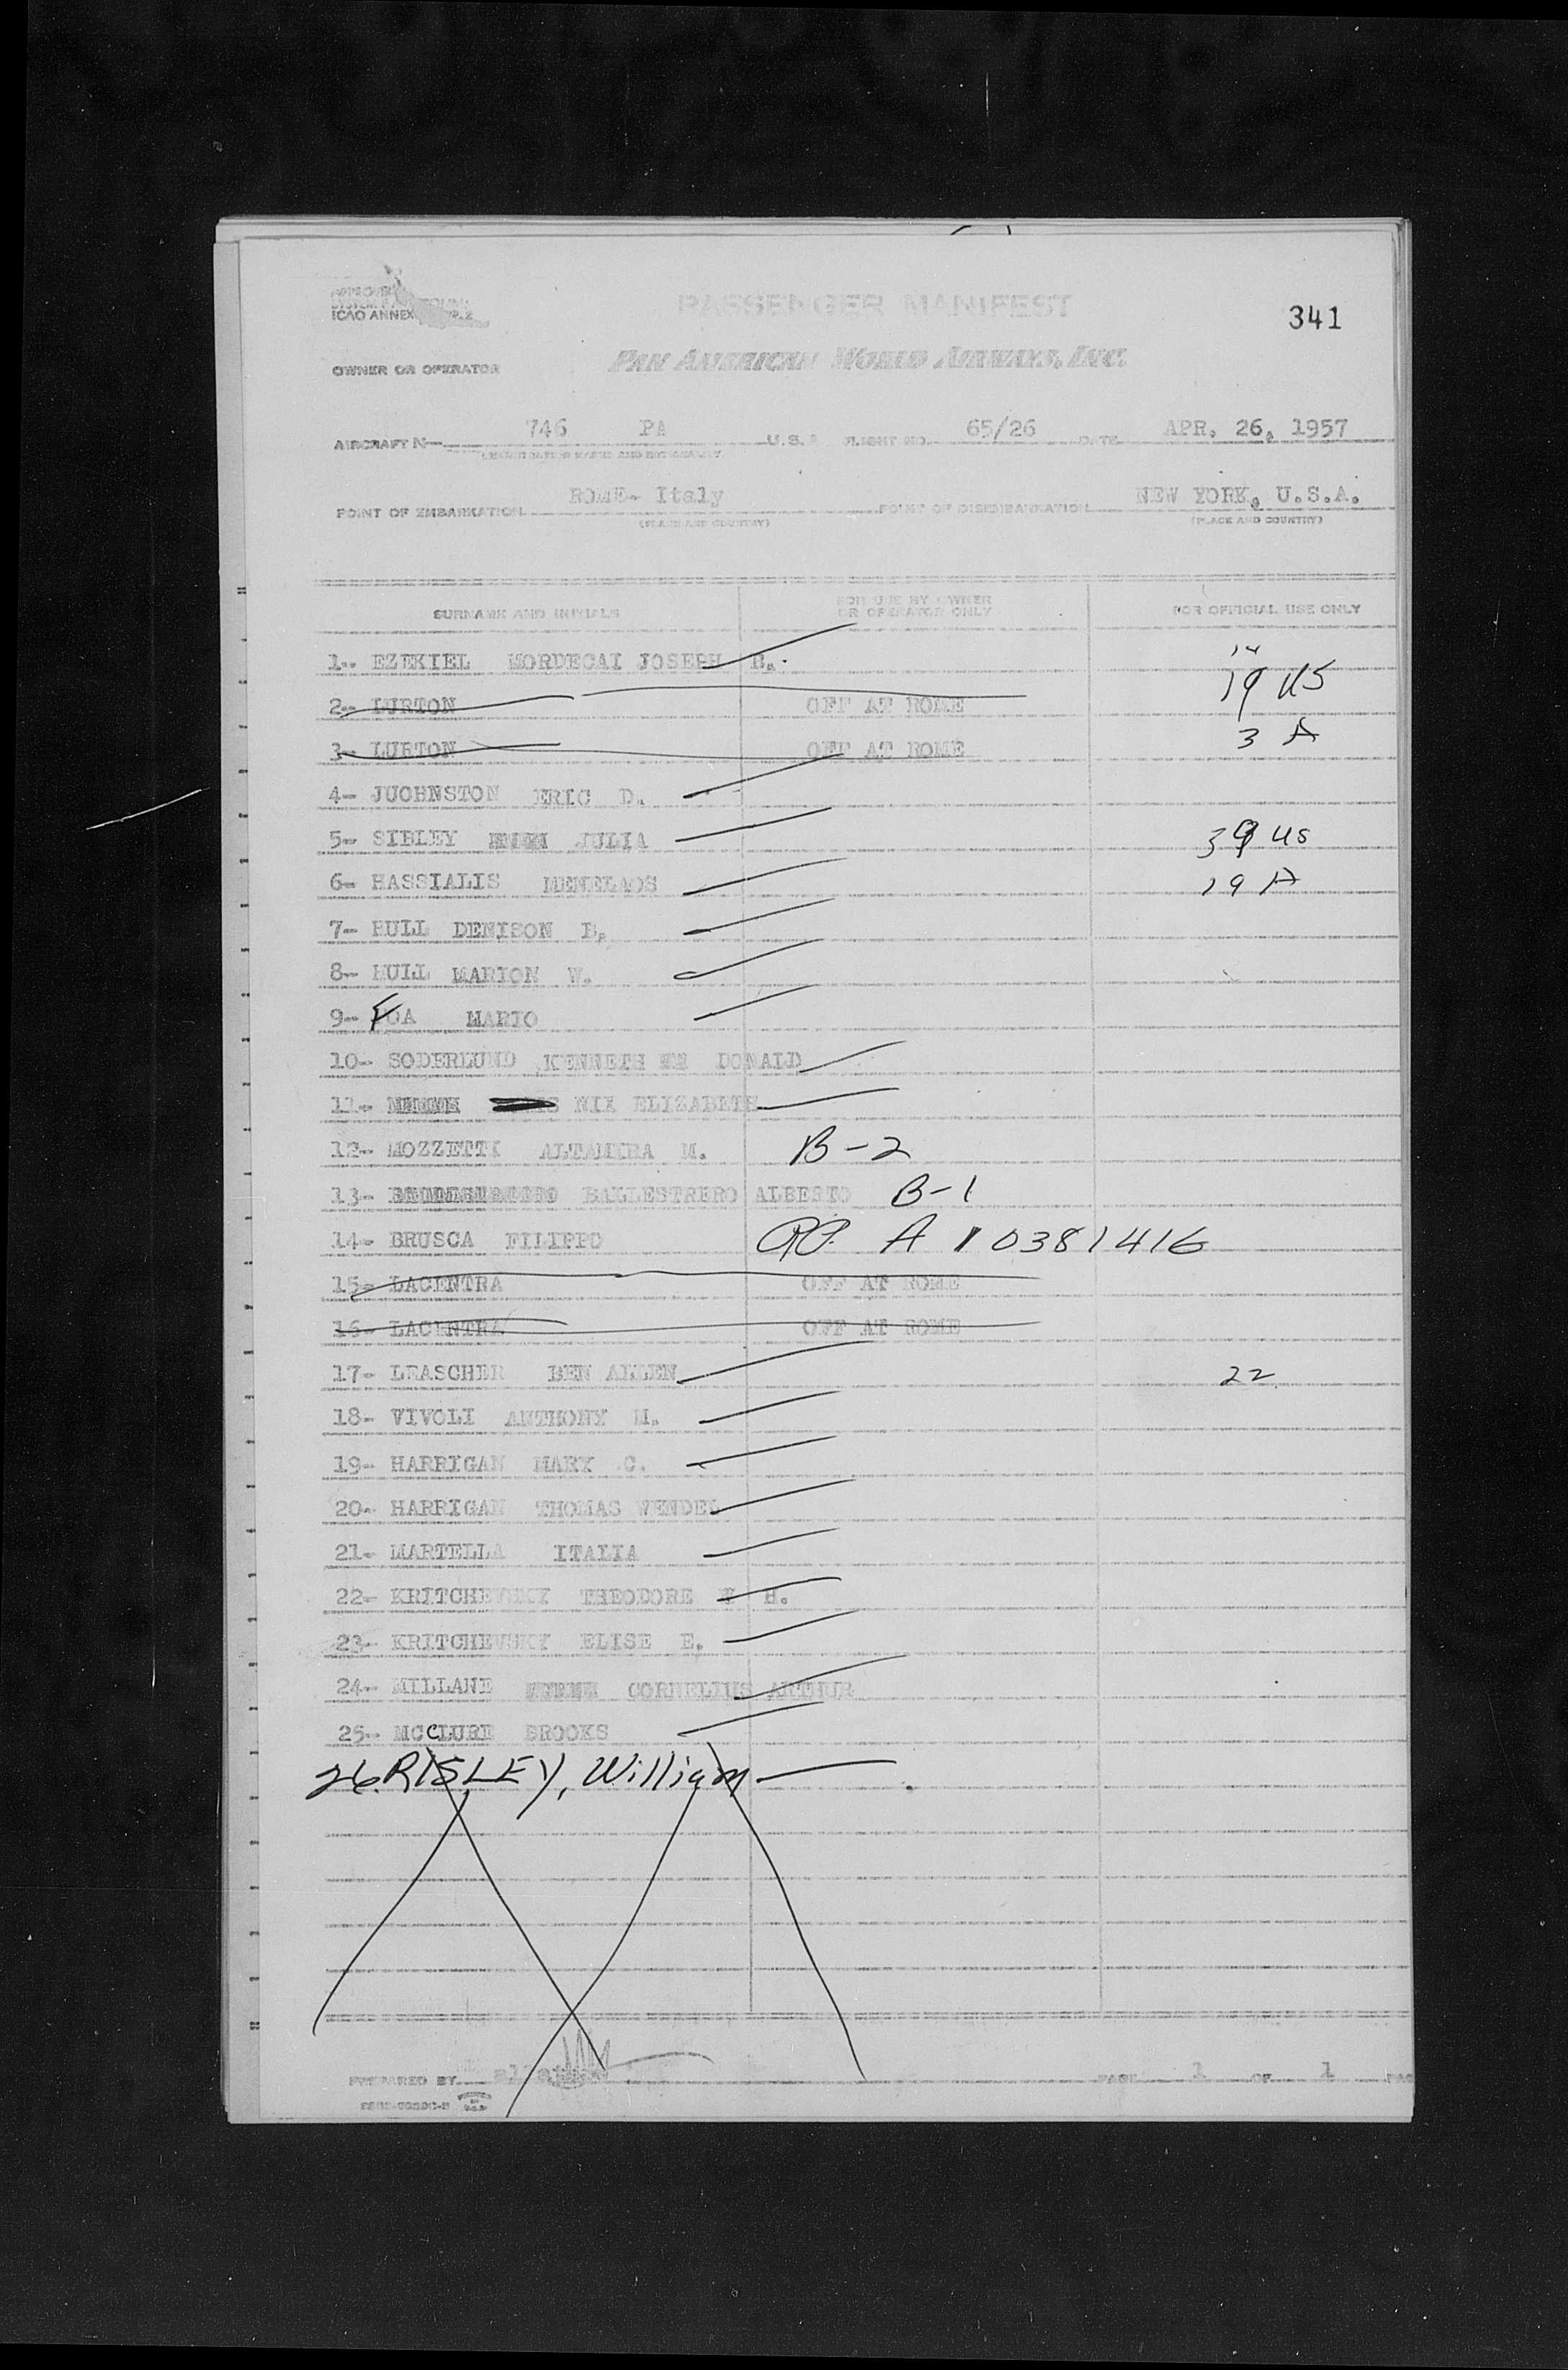 APPROVED
ICAO ANNEX
PASSENGER MANIFEST
341
OWNER OR OPERATOR PAN AMERICAN WORLD AIRWAYS, INC.
AIRCRAFT N— 746 PA U.S. FLIGHT NO. 65/26 DATE APR. 26, 1957
(REGISTRATION MARKS AND NATIONALITY)
POINT OF EMBARKATION ROME- Italy POINT OF DISEMBARKATION NEW YORK, U.S.A.
(PLACE AND COUNTRY) (PLACE AND COUNTRY)
SURNAME AND INITIALS FOR USE BY OWNER OR OPERATOR ONLY FOR OFFICIAL USE ONLY
1-- EZEKIEL MORDECAI JOSEPH B. 14
2-- LURTON OFF AT ROME 19 US
3- LURTON OFF AT ROME 3 A
4- JUOHNSTON ERIC D.
5- SIBLEY JULIA 39 US
6- HASSIALIS MENELAOS 19 A
7- HULL DENISON B.
8-- HULL MARION W.
9-- FOA MARIO
10- SODERLUND KENNETH DONALD
11- NIX ELIZABETH
12- MOZZETTI ALTAMIRA M. B-2
13- BALLESTRERO ALBERTO B-1
14- BRUSCA FILIPPO A 10381416
15- LACENTRA OFF AT ROME
16- LACENTRA OFF AT ROME
17- LEASCHER BEN ALLEN 22
18- VIVOLI ANTHONY M.
19- HARRIGAN MARY C.
20- HARRIGAN THOMAS WENDEL
21- MARTELLA ITALIA
22- KRITCHEVSKY THEODORE H.
23- KRITCHEVSKY ELISE E.
24- MILLANE CORNELIUS ARTHUR
25-- MCCLURE BROOKS
26. RISLEY, William
PREPARED BY PAGE 1 OF 1 PAG